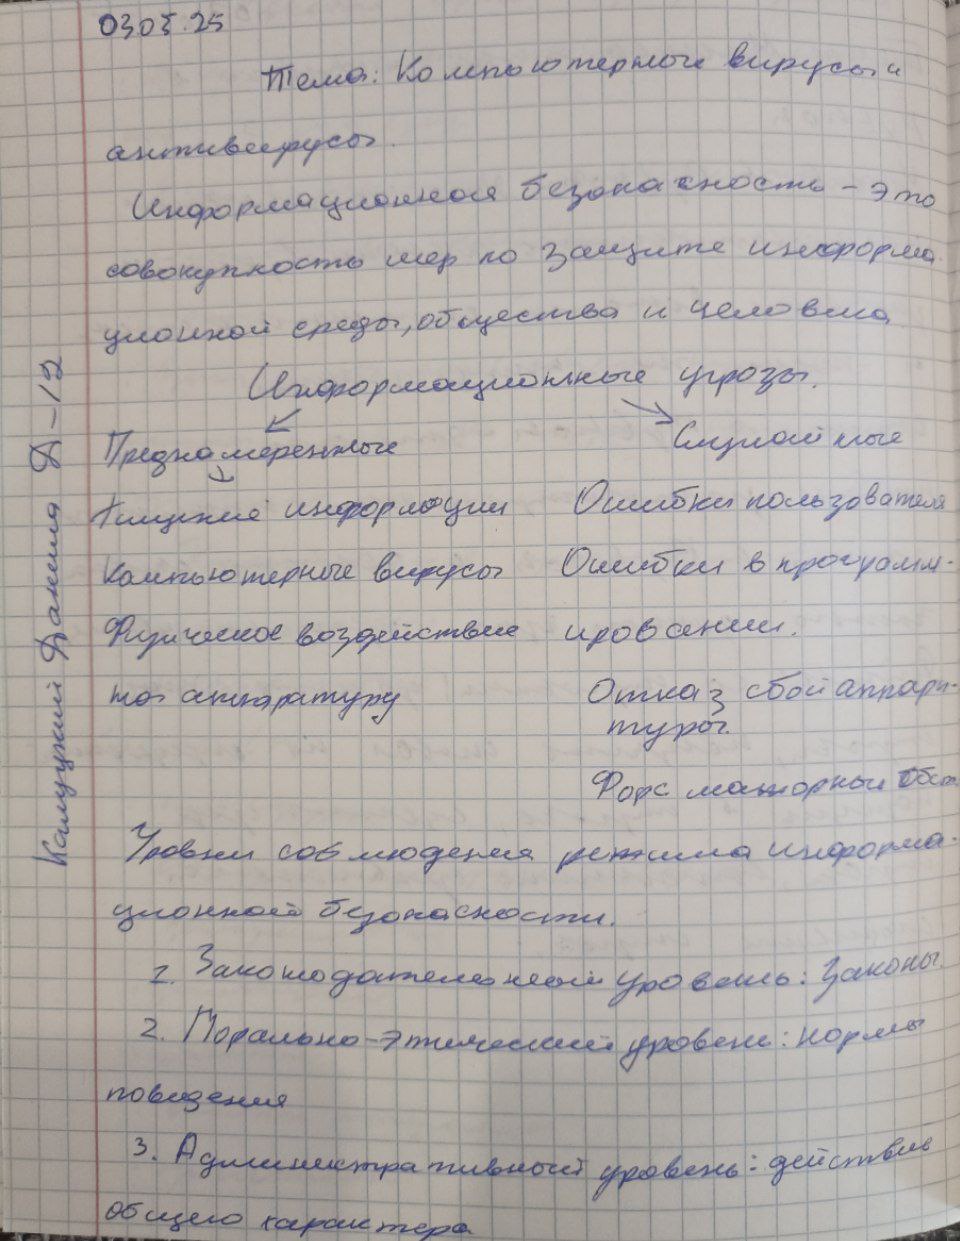 03.05.25
Тема: Компьютерные вирусы и
антивирусы.
Информационная безопасность - это
совокупность мер по защите информа
ционной среды, общества и человека
Информационные угрозы.
Преднамеренные Случайные
Хищение информации Ошибки пользователя
Компьютерные вирусы Ошибки в программ-
Физическое воздействие ировании.
на аппаратуру Отказ сбой аппара-
туры.
Форс мажорные обст
Уровни соблюдения режима информа-
ционной безопасности.
1. Законодательный уровень: Законы.
2. Морально-этический уровень: нормы
поведения
3. Административный уровень: действия
общего характера
Калуцкий Данила Д-12